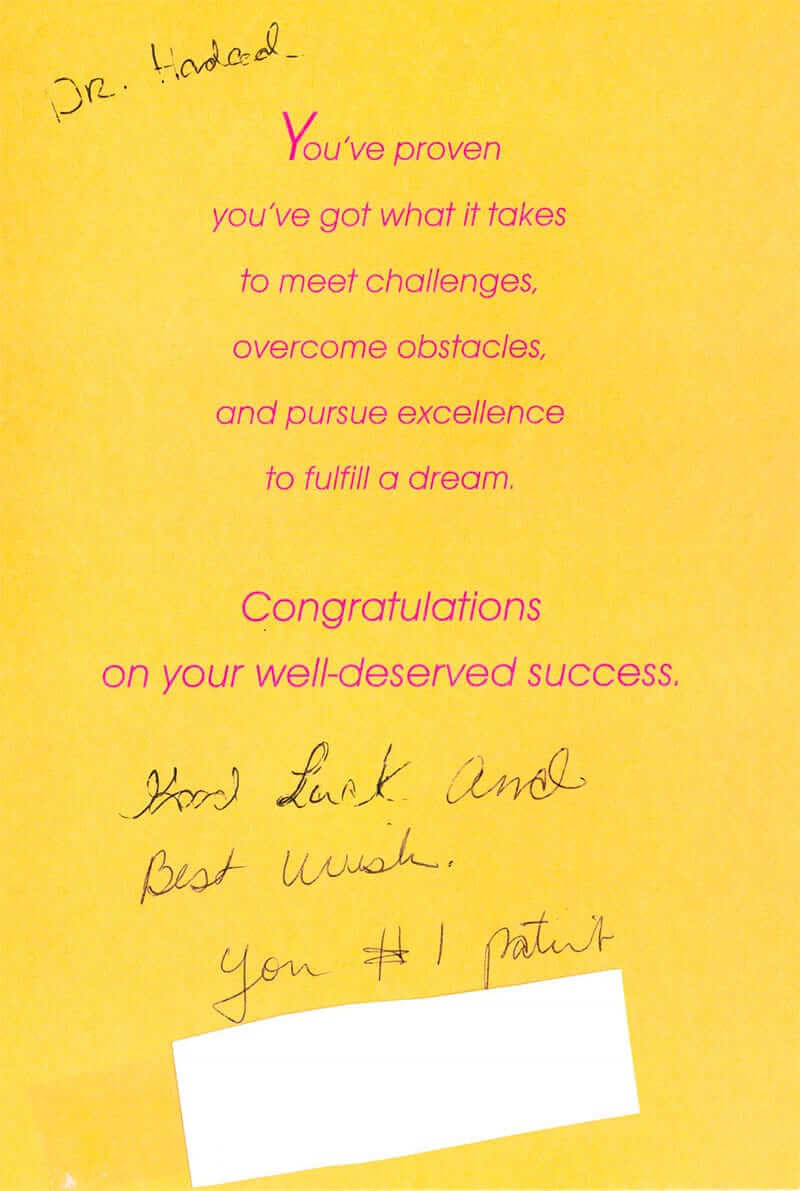 Dr. Hadaad
You've proven
you've got what it takes
to meet challenges,
overcome obstacles,
and pursue excellence
to fulfill a dream.
Congratulations
on your well-deserved success.
Good Luck And
Best Wish.
You #1 patient